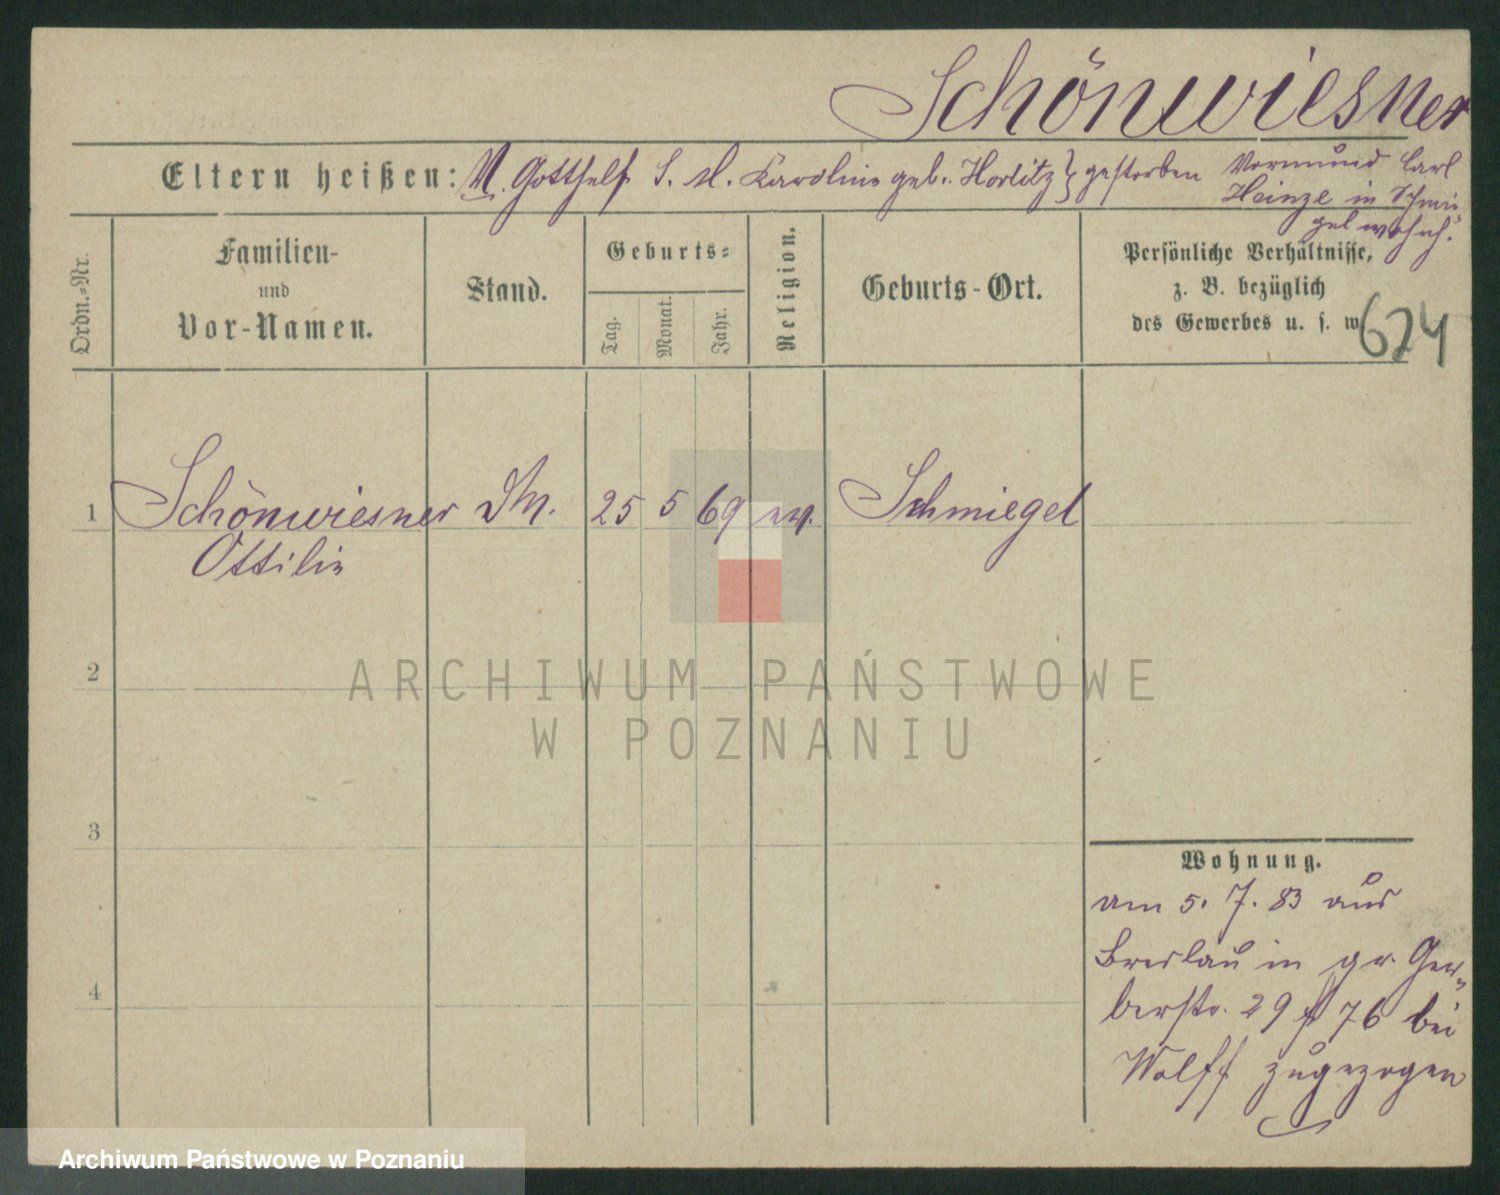 Schönwiesner
Eltern heißen: V. Gotthelf S. M. Karoline geb. Horlitz } gestorben Vormund Carl
Heinze in Schmie-
gel wohnh.
Ordn.-Nr.
Familien-
und
Vor-Namen.
Stand.
Geburts-
Tag.
Monat.
Jahr.
Religion.
Geburts-Ort.
Persönliche Verhältnisse,
z. B. bezüglich
des Gewerbes u. s. w.
624
1 Schönwiesner 25 5 69 ev. Schmiegel
Ottilie
2
3
4
Wohnung.
am 5. 7. 83 aus
Breslau in gr. Ger-
berstr. 29 76 bei
Wolff zugezogen
ARCHIWUM PAŃSTWOWE
W POZNANIU
Archiwum Państwowe w Poznaniu